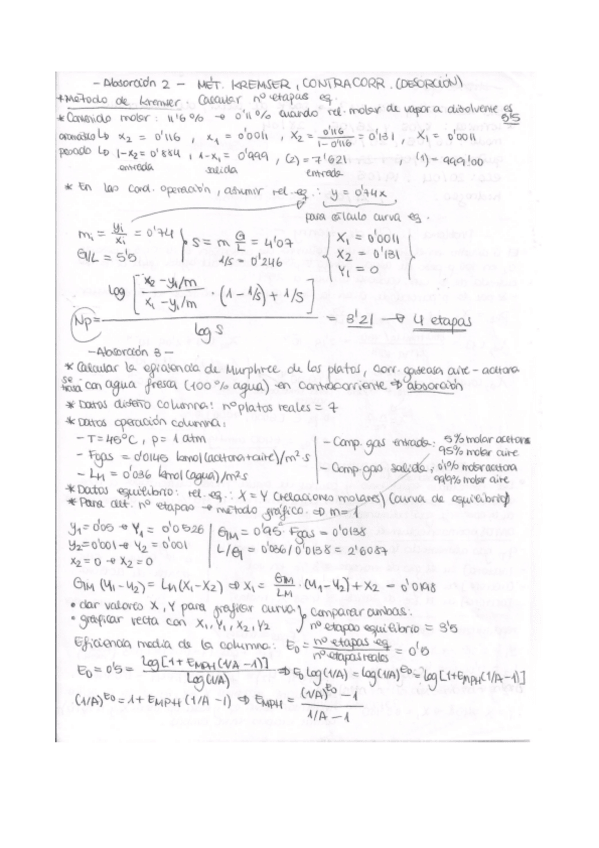 - Absorción 2 - MÉT. KREMSER, CONTRACORR. (DESORCIÓN)
* Método de Kremser. Calcular nº etapas eq.
* Contenido molar: 11'6% → 0'11% cuando rel. molar de vapor a disolvente es 5'5
x2 = 0'116, x1 = 0'0011, X2 = 0'116/(1-0'116) = 0'131, X1 = 0'0011
pesado ↳ 1-x2 = 0'884, 1-x1 = 0'999, (2) = 7'621, (1) = 999'00
entrada salida entrada
* En las cond. operación, asumir rel. eq.: y = 0'74x
para cálculo curva eq.
mi = yi/xi = 0'74
G/L = 5'5
S = m G/L = 4'07
1/S = 0'246
X1 = 0'0011
X2 = 0'131
Y1 = 0
Np = log [ (x2 - y1/m)/(x1 - y1/m) · (1 - 1/S) + 1/S ] / log S = 3'21 → 4 etapas
- Absorción 3 -
* Calcular la eficiencia de Murphree de los platos, corr. gaseosa aire - acetona
se trata con agua fresca (100% agua) en contracorriente ⇒ absorción
* Datos diseño columna: nº platos reales = 7
* Datos operación columna:
- T = 45ºC, p = 1 atm
- Fgas = 0'0145 kmol (acetona+aire)/m² s
- LM = 0'036 kmol (agua)/m² s
- Comp. gas entrada: 5% molar acetona
95% molar aire
- Comp. gas salida: 0,1% molar acetona
99,9% molar aire
* Datos equilibrio: rel. eq.: X = Y (relaciones molares) (curva de equilibrio)
* Para det. nº etapas → método gráfico ⇒ m = 1
y1 = 0'05 → Y1 = 0'0526
y2 = 0'001 → Y2 = 0'001
x2 = 0 → X2 = 0
GM = 0'95 · Fgas = 0'0138
L/G = 0'036/0'0138 = 2'6087
GM (Y1 - Y2) = LM (X1 - X2) ⇒ X1 = GM/LM · (Y1 - Y2) + X2 = 0'0198
• dar valores X, Y para graficar curva
• graficar recta con X1, Y1, X2, Y2
comparar ambas:
nº etapas equilibrio = 3'5
Eficiencia media de la columna: E0 = nº etapas eq/nº etapas reales = 0'5
E0 = 0'5 = log[1 + EMPH (1/A - 1)]/log(1/A) ⇒ E0 log(1/A) = log(1/A)^E0 = log[1 + EMPH (1/A - 1)]
(1/A)^E0 = 1 + EMPH (1/A - 1) ⇒ EMPH = ((1/A)^E0 - 1)/(1/A - 1)